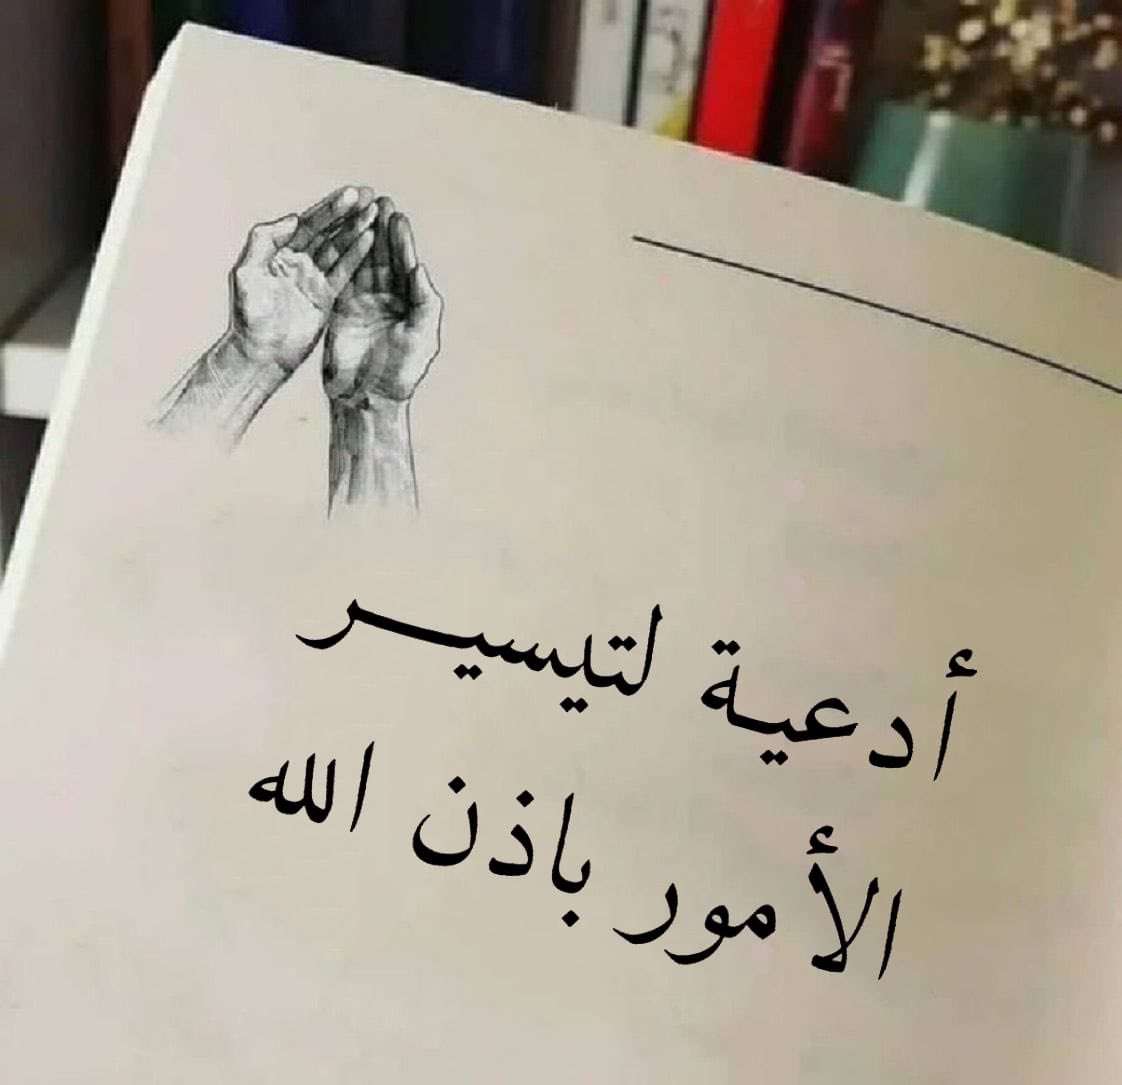 أدعية لتيسيـــر
الأمور باذن الله